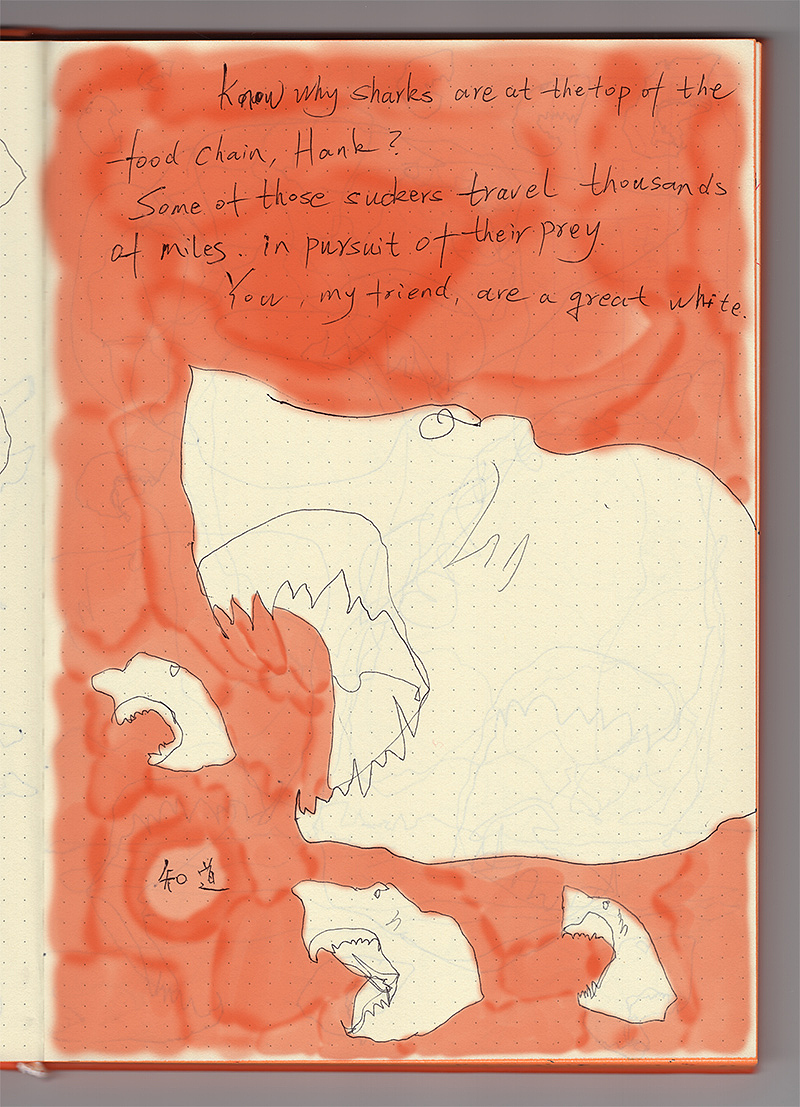 Know why sharks are at the top of the
food chain, Hank?
Some of those suckers travel thousands
of miles. in pursuit of their prey.
You, my friend, are a great white.
知道